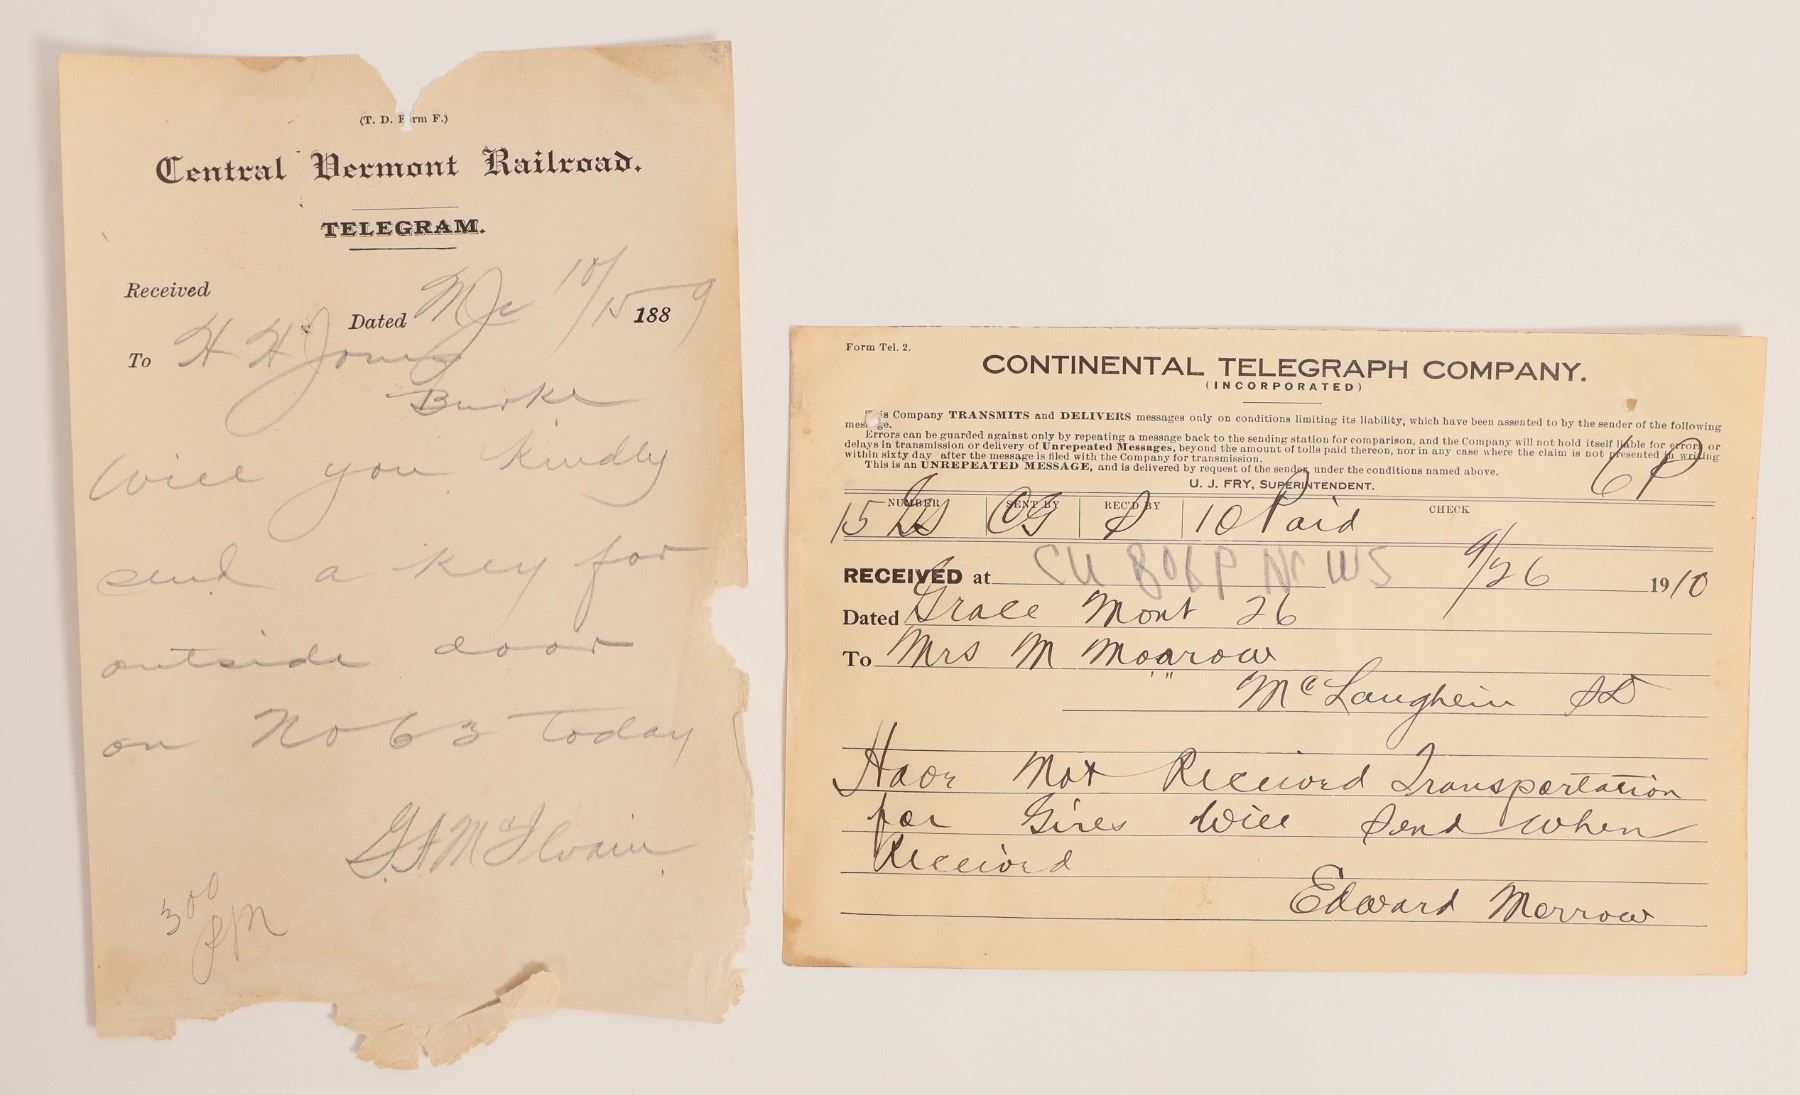 (T. D. Form F.)
Central Vermont Railroad.
TELEGRAM.
Received
Dated 10/15 1889
To H H Jones
Burke
Will you kindly
send a key for
outside door
on No 63 today
G F McIlvain
3 00
PM
Form Tel. 2.
CONTINENTAL TELEGRAPH COMPANY.
(INCORPORATED)
This Company TRANSMITS and DELIVERS messages only on conditions limiting its liability, which have been assented to by the sender of the following
message.
Errors can be guarded against only by repeating a message back to the sending station for comparison, and the Company will not hold itself liable for errors or
delays in transmission or delivery of Unrepeated Messages, beyond the amount of tolls paid thereon, nor in any case where the claim is not presented in writing
within sixty day after the message is filed with the Company for transmission.
This is an UNREPEATED MESSAGE, and is delivered by request of the sender under the conditions named above.
U. J. FRY, SUPERINTENDENT.
6P
NUMBER SENT BY REC'D BY CHECK
15 CG 10 Paid
RECEIVED at 9/26 1910
Dated Grace Mont 26
To Mrs M Moarow
McLaughein SD
Have Not Received Transportation
for Gires Will Send When
Received
Edward Merrow